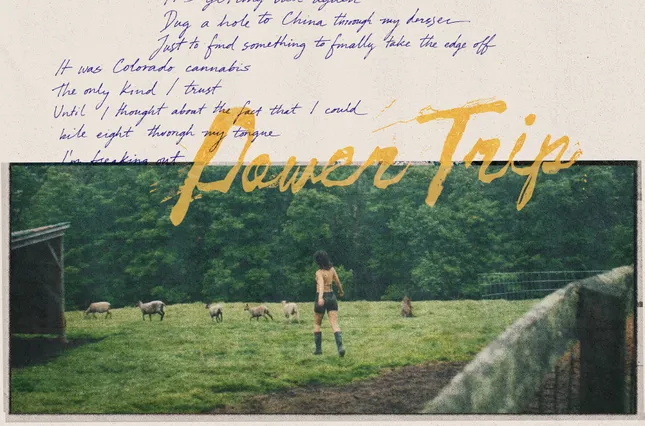 Dug a hole to China through my dresser
Just to find something to finally take the edge off
It was Colorado cannabis
The only kind I trust
Until I thought about the fact that I could
bite eight through my tongue
I'm freaking out
Power Trip